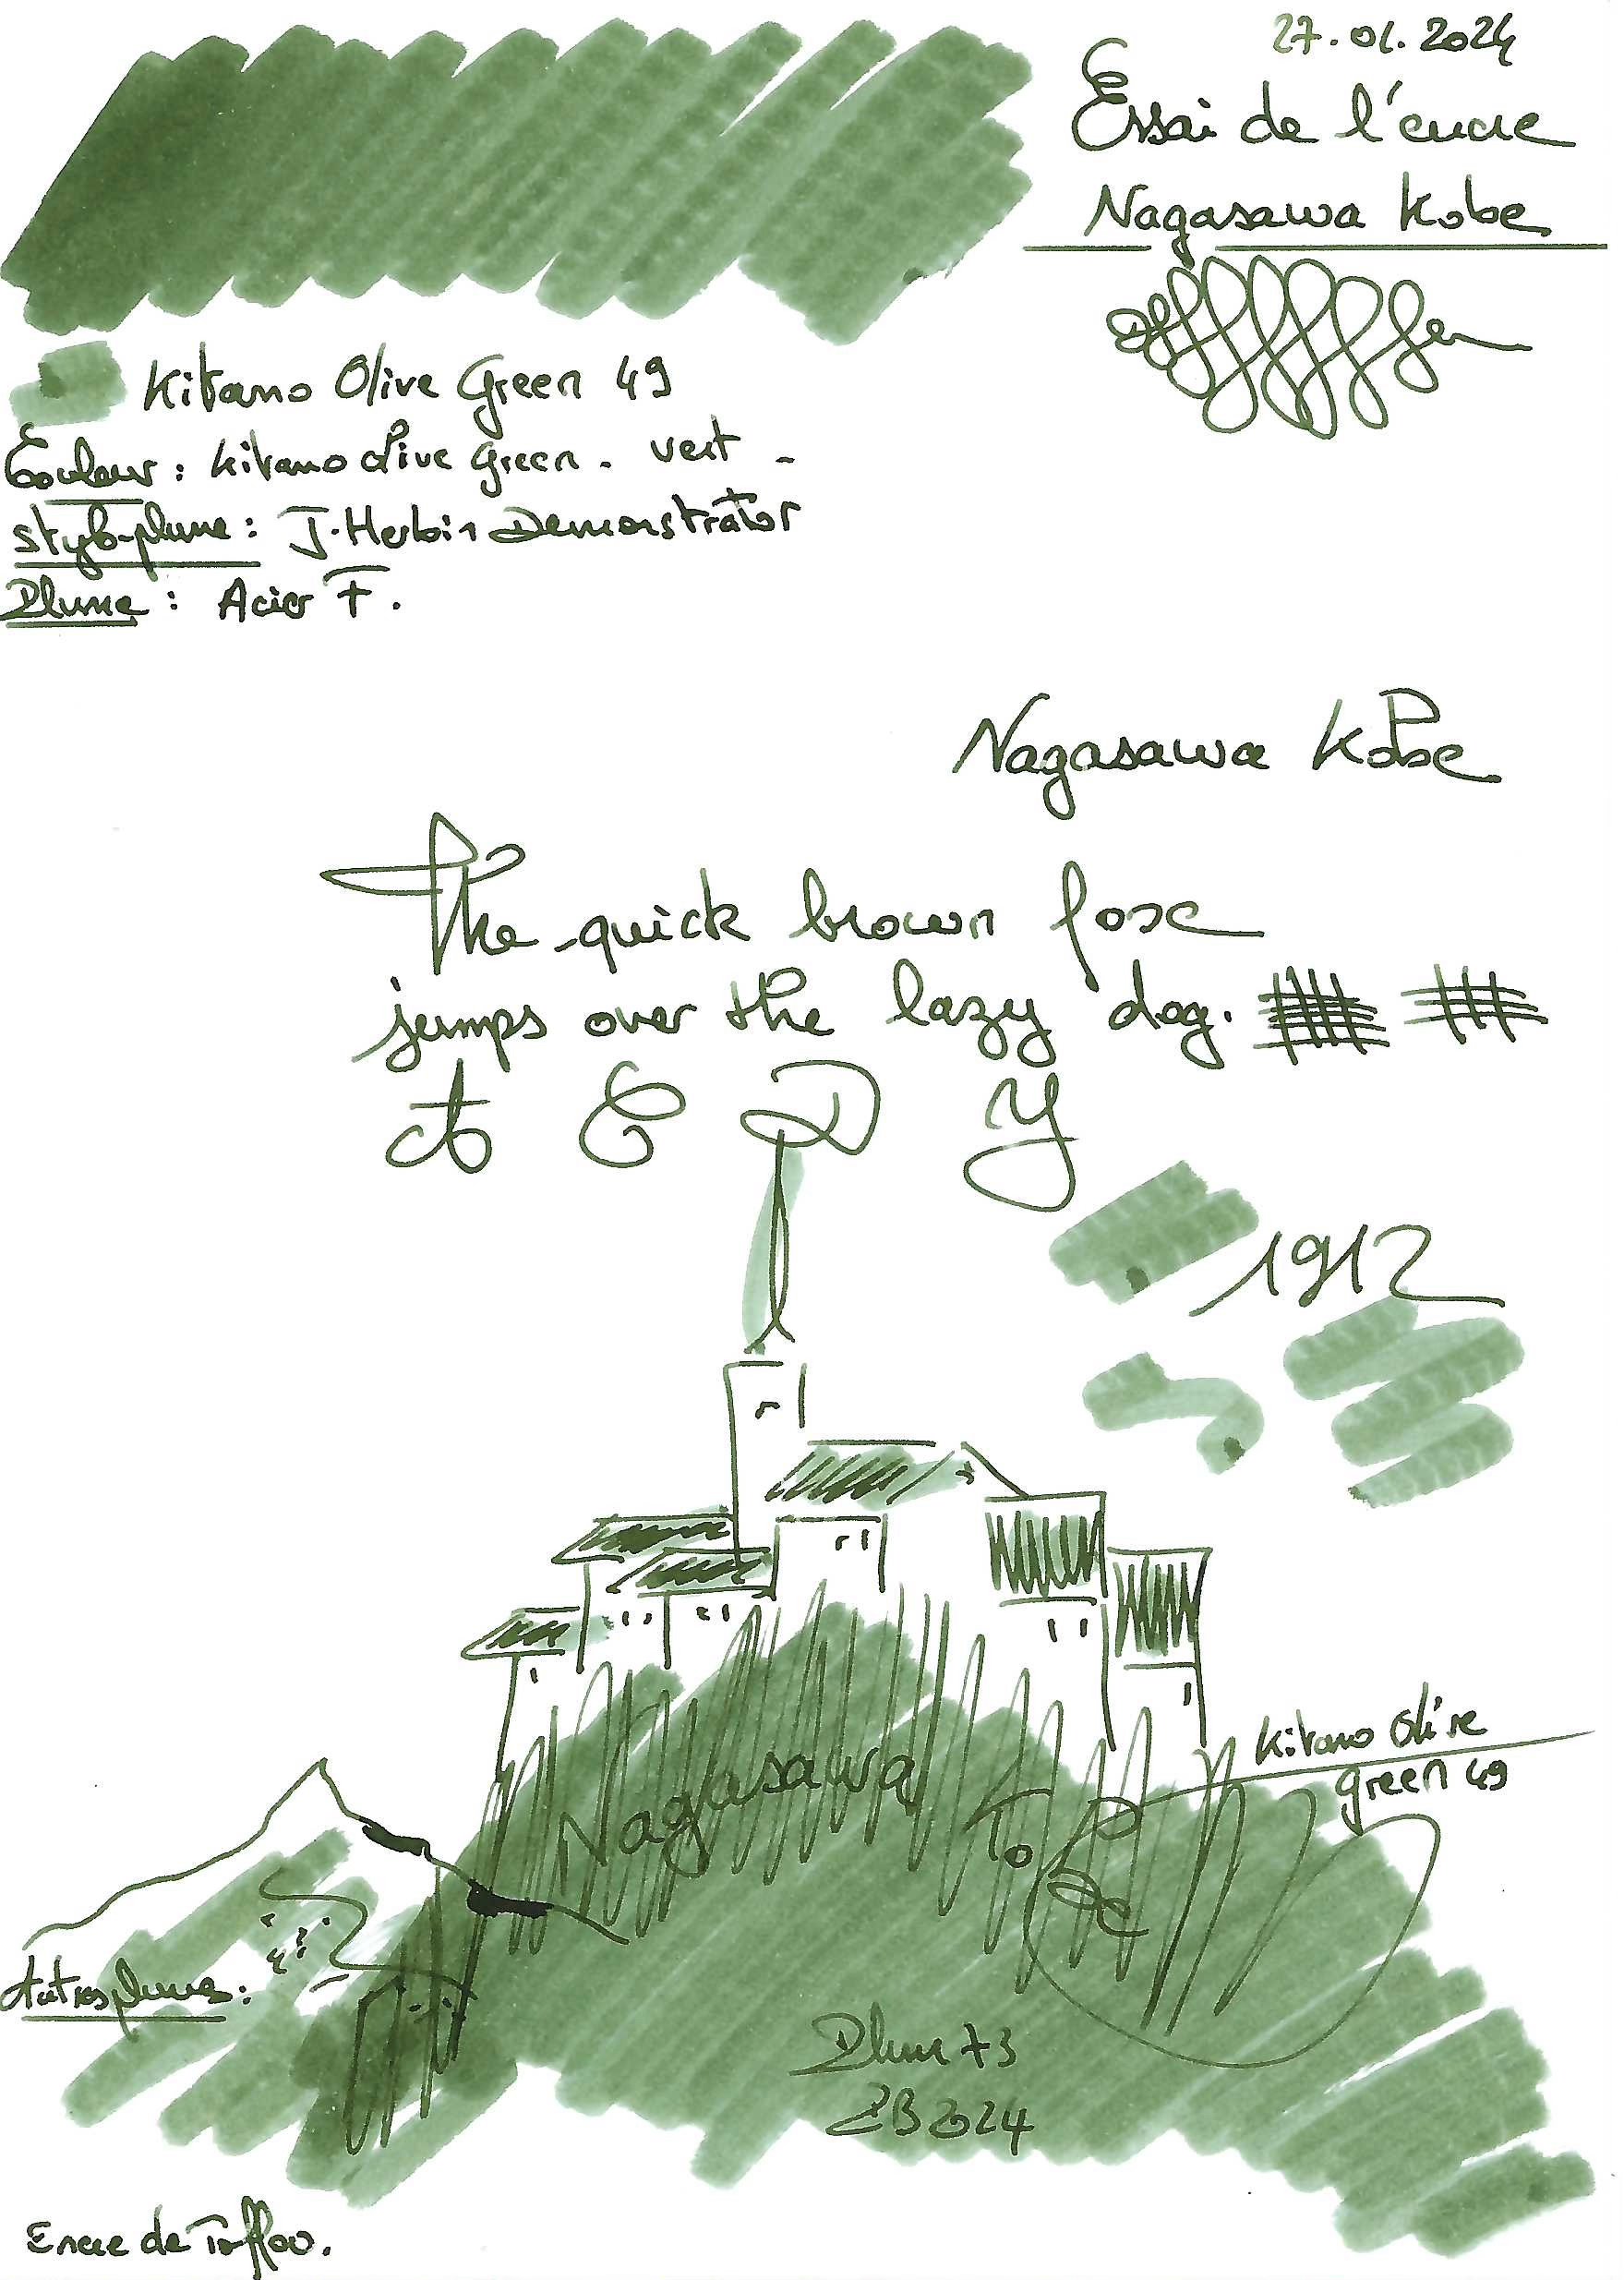 27.01.2024
Essai de l'encre
Nagasawa Kobe
Kitano Olive Green 49
Couleur : Kitano Olive Green - vert -
stylo-plume : J. Herbin Demonstrator
Plume : Acier F.
Nagasawa Kobe
The quick brown fox
jumps over the lazy dog.
A E D Y
1912
Kitano Olive
green 49
Nagasawa Kobe
Autres plumes :
Plum 73
2024
Encre de